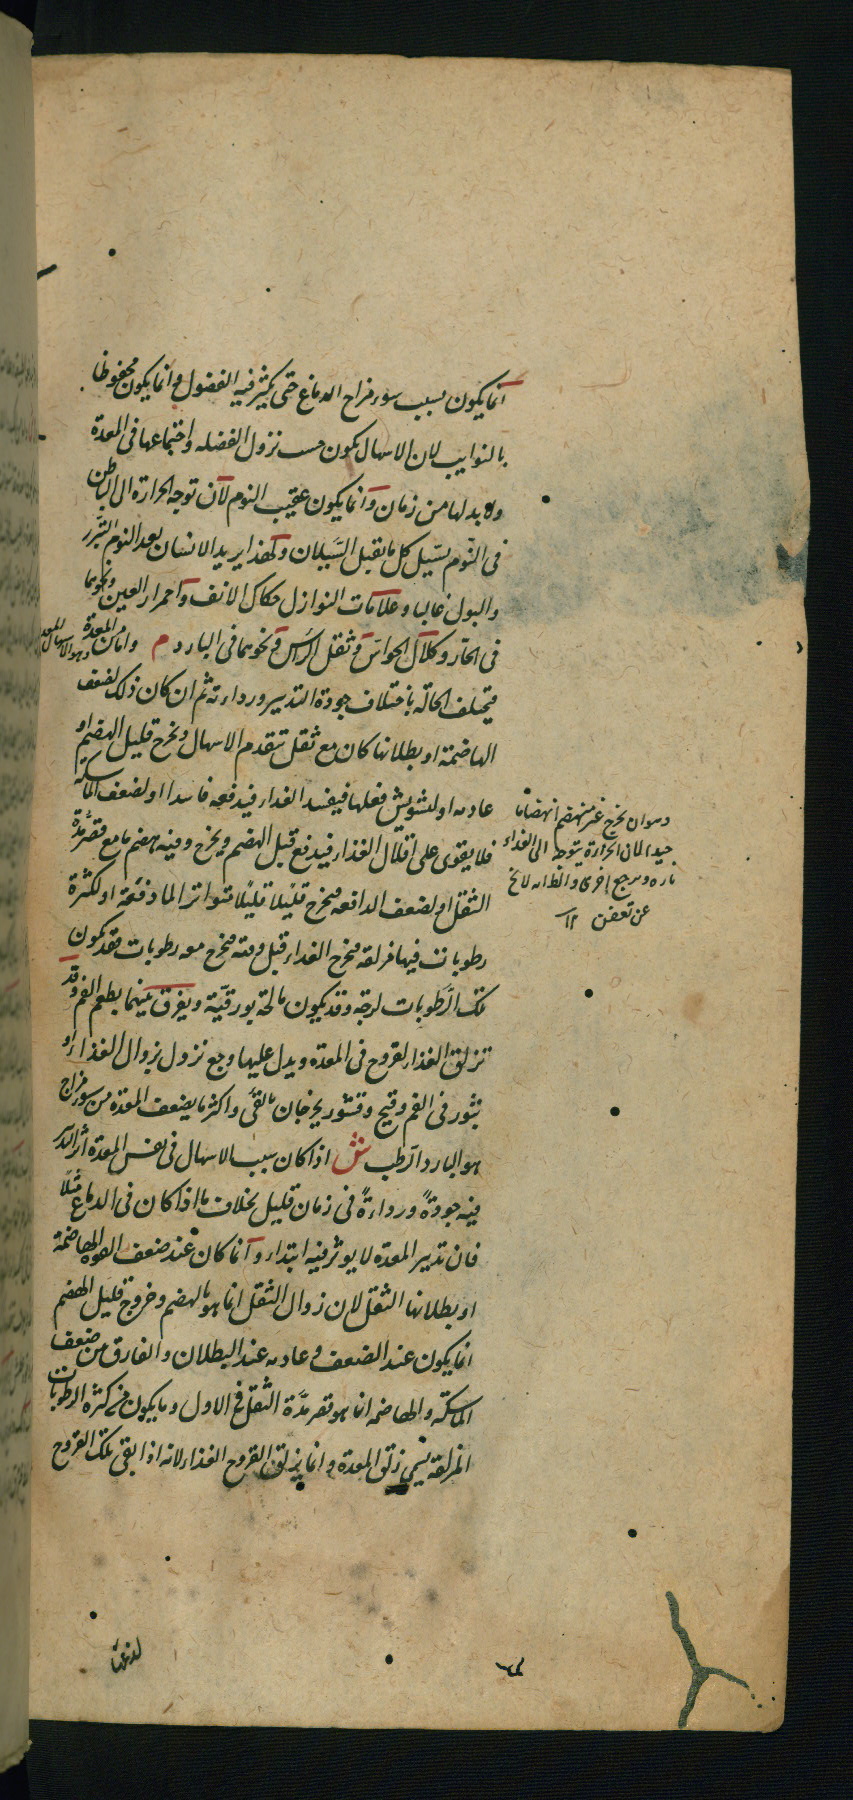 انما يكون بسبب سوء مزاج الدماغ حتى يكثر فيه الفضول وانما يكون محفوظا
بالنوايب لان الاسهال يكون حسب نزول الفضله واجتماعها فى المعدة
ولا بد لها من زمان وانما يكون عقيب النوم لان توجه الحرارة الى الباطن
فى النوم يسيل كل ما يقبل السيلان ولهذا يريد الانسان بعد النوم التبرز
والبول غالبا وعلامات النوازل حكاك الانف واحمرار العين ونحوهما
فى الحار وكلال الحواس وثقل الراس ونحوهما فى البارد م واما من المعدة
وهو الاسهال المعدى
فيختلف الحاله باختلاف جودة التدبير ورداءته ثم ان كان ذلك لضعف
الهاضمة او بطلانها كان مع ثقل يتقدم الاسهال ويخرج قليل الهضم او
عادمه او لتشويش فعلها فيفسد الغداء فيدفعه فاسدا او لضعف الماسكه
فلا يقوى على اقلال الغذاء فيدفع قبل الهضم ويخرج وفيه هضم ما مع قصر مدة
الثقل او لضعف الدافعه فيخرج قليلا قليلا متواترا لا دفعة او لكثرة
رطوبات فيها مزلقه فيخرج الغداء قبل وقته فيخرج معه رطوبات فقد يكون
تلك الرطوبات لزجه وقد يكون مالحة بورقية ويفرق بينهما بطعم الفم وقد
تزلق الغذاء لقروح فى المعدة ويدل عليها وجع نزول بزوال الغذاء او
بثور فى الفم وقيح وقشور يخرجان بالقى واكثر ما يضعف المعدة من سوء مزاج
هو البارد الرطب ش اذا كان سبب الاسهال فى نفس المعدة اثر التدبير
فيه جودةً ورداءةً فى زمان قليل بخلاف ما اذا كان فى الدماغ مثلا
فان تدبير المعدة لا يوثر فيه ابتداء وانما كان عند ضعف القوة الهاضمة
او بطلانها الثقل لان زوال الثقل انما هو بالهضم وخروج قليل الهضم
انما يكون عند الضعف وعادمه عند البطلان والفارق من ضعف
الماسكة والهاضمه انما هو قصر مدة الثقل فى الاول وما يكون من كثرة الرطوبات
المزلقة يسمى زلق المعدة وانما يزلق القروح الغذاء لانه اذا بقى تلك القروح
وهو ان يخرج غير منهضم انهضاما
جيدا لان الحرارة يتوجه الى الغداء
تاره ويرجع اخرى
عن تعفن ١٢
لذعها